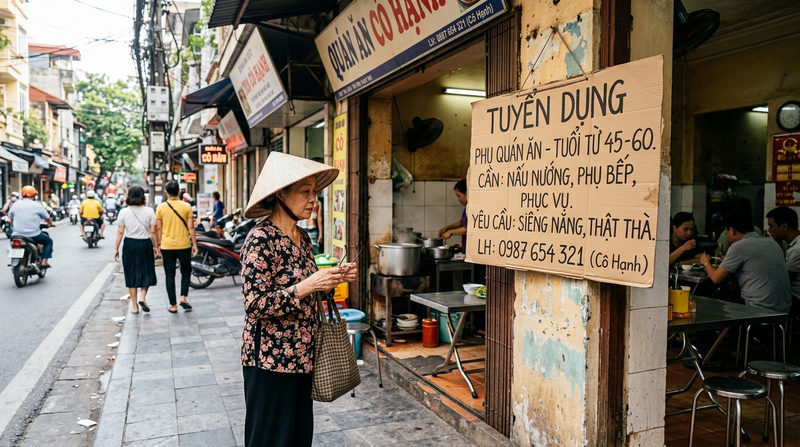 QUÁN ĂN CÔ HẠNH
LH: 0987 654 321 (Cô Hạnh)
TUYỂN DỤNG
PHỤ QUÁN ĂN - TUỔI TỪ 45-60.
CẦN: NẤU NƯỚNG, PHỤ BẾP,
PHỤC VỤ.
YÊU CẦU: SIÊNG NĂNG, THẬT THÀ.
LH: 0987 654 321 (Cô Hạnh)